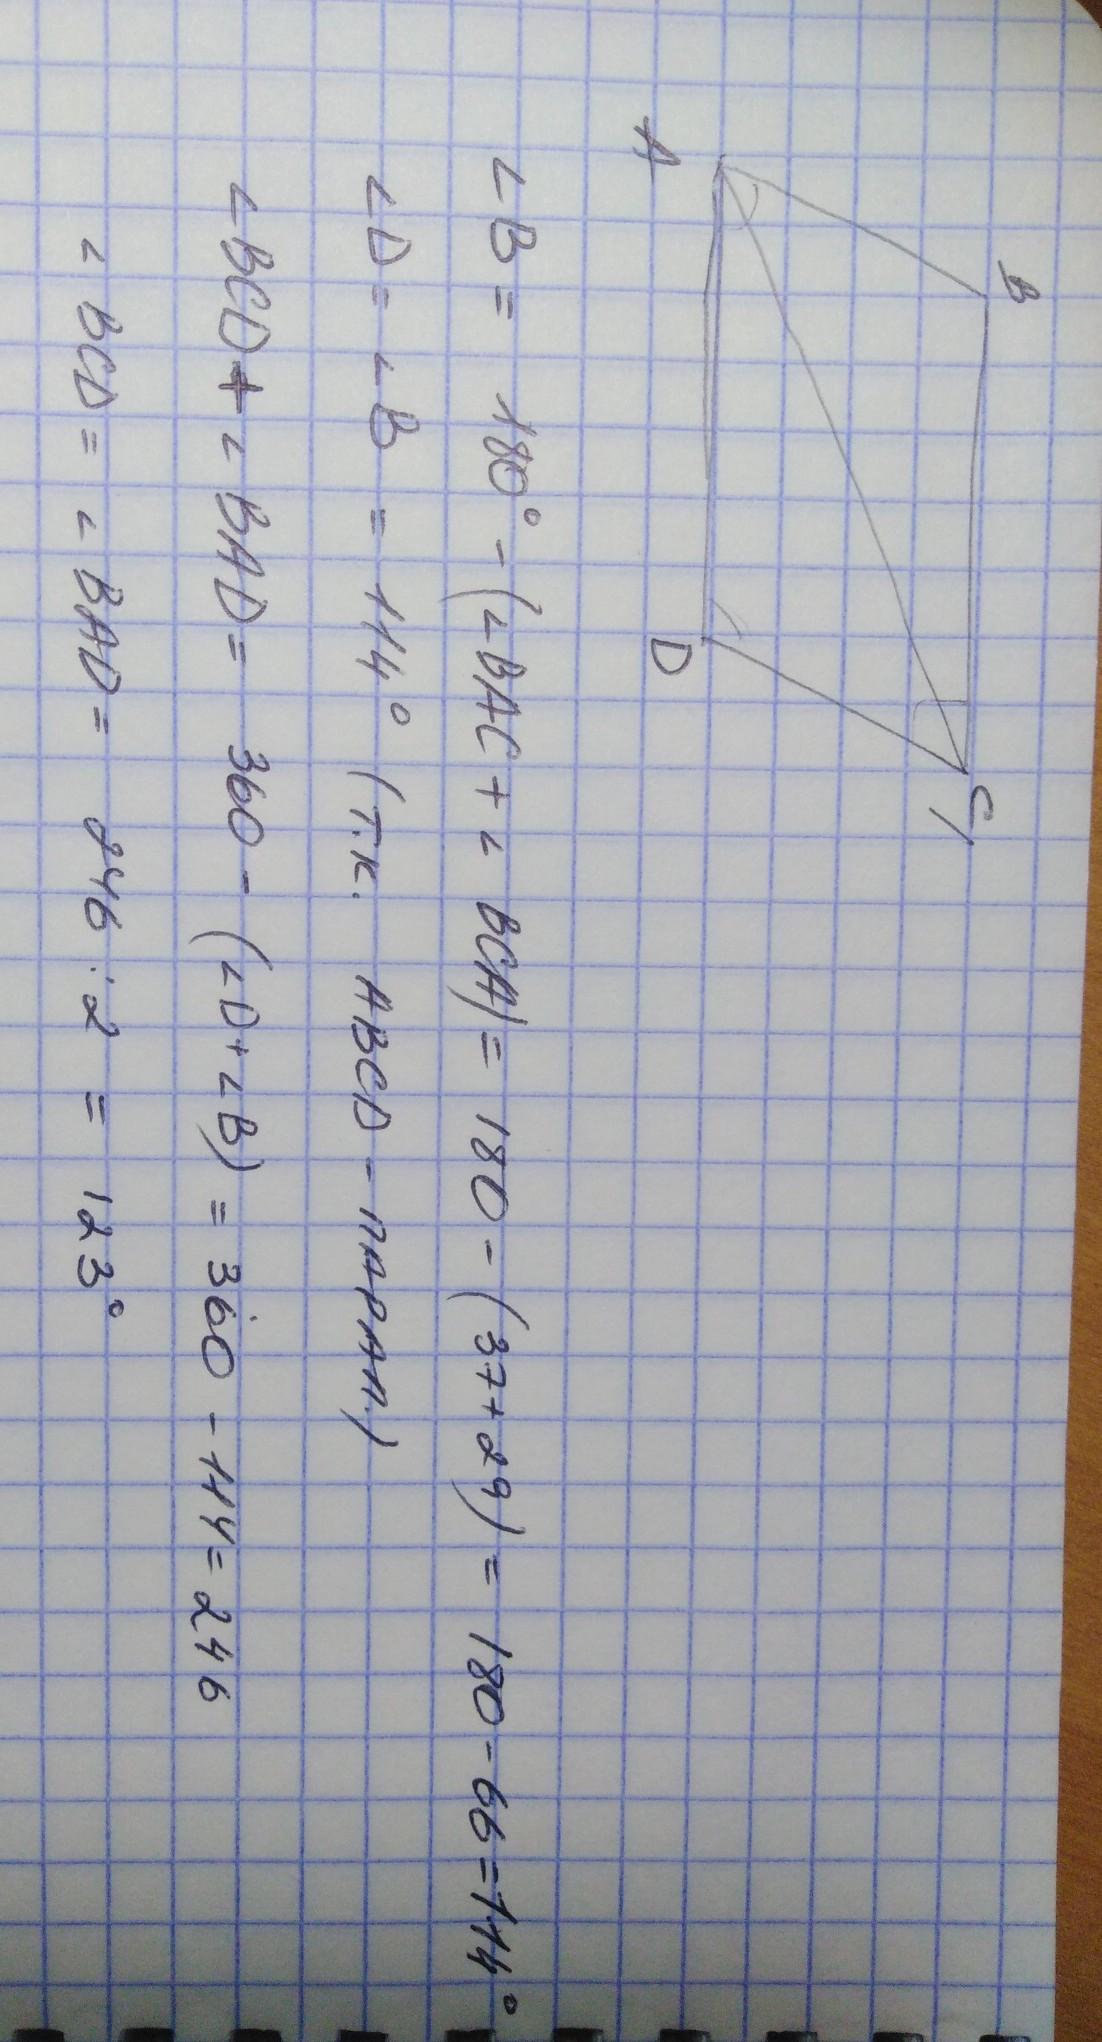 B
C
A
D
∠B = 180° - (∠BAC + ∠ BCA) = 180 - (37+29) = 180 - 66 = 114°
∠D = ∠B = 114° (т.к. ABCD - парал.)
∠BCD + ∠BAD = 360 - (∠D + ∠B) = 360 - 114 = 246
∠BCD = ∠BAD = 246 : 2 = 123°